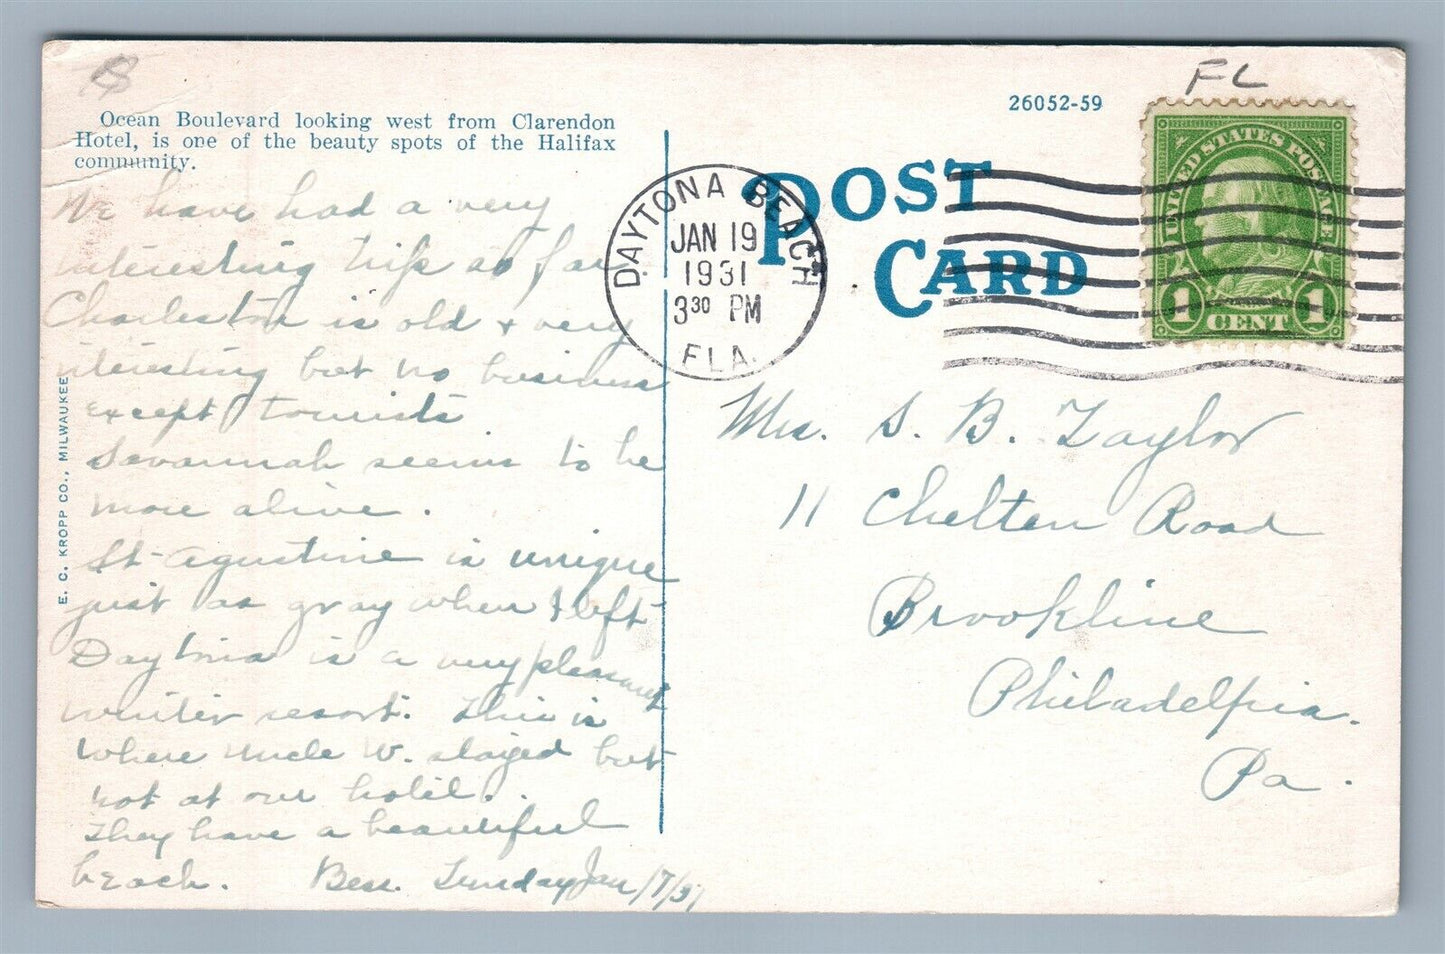 FL
26052-59
Ocean Boulevard looking west from Clarendon
Hotel, is one of the beauty spots of the Halifax
community.
We have had a very
interesting trip so far
Charleston is old & very
interesting but no business
except tourists
Savannah seems to be
more alive.
St-Agustine is unique
just as gray when I left
Daytona is a very pleasant
winter resort. This is
where Uncle W. stayed but
not at our hotel.
They have a beautiful
beach. Bess. Sunday Jan
E. C. KROPP CO., MILWAUKEE
DAYTONA BEACH
JAN 19
1931
3 30 PM
FLA.
POST
CARD
UNITED STATES POSTAGE
1 CENT 1
Mrs. S. B. Taylor
11 Chelten Road
Brookline
Philadelphia.
Pa.